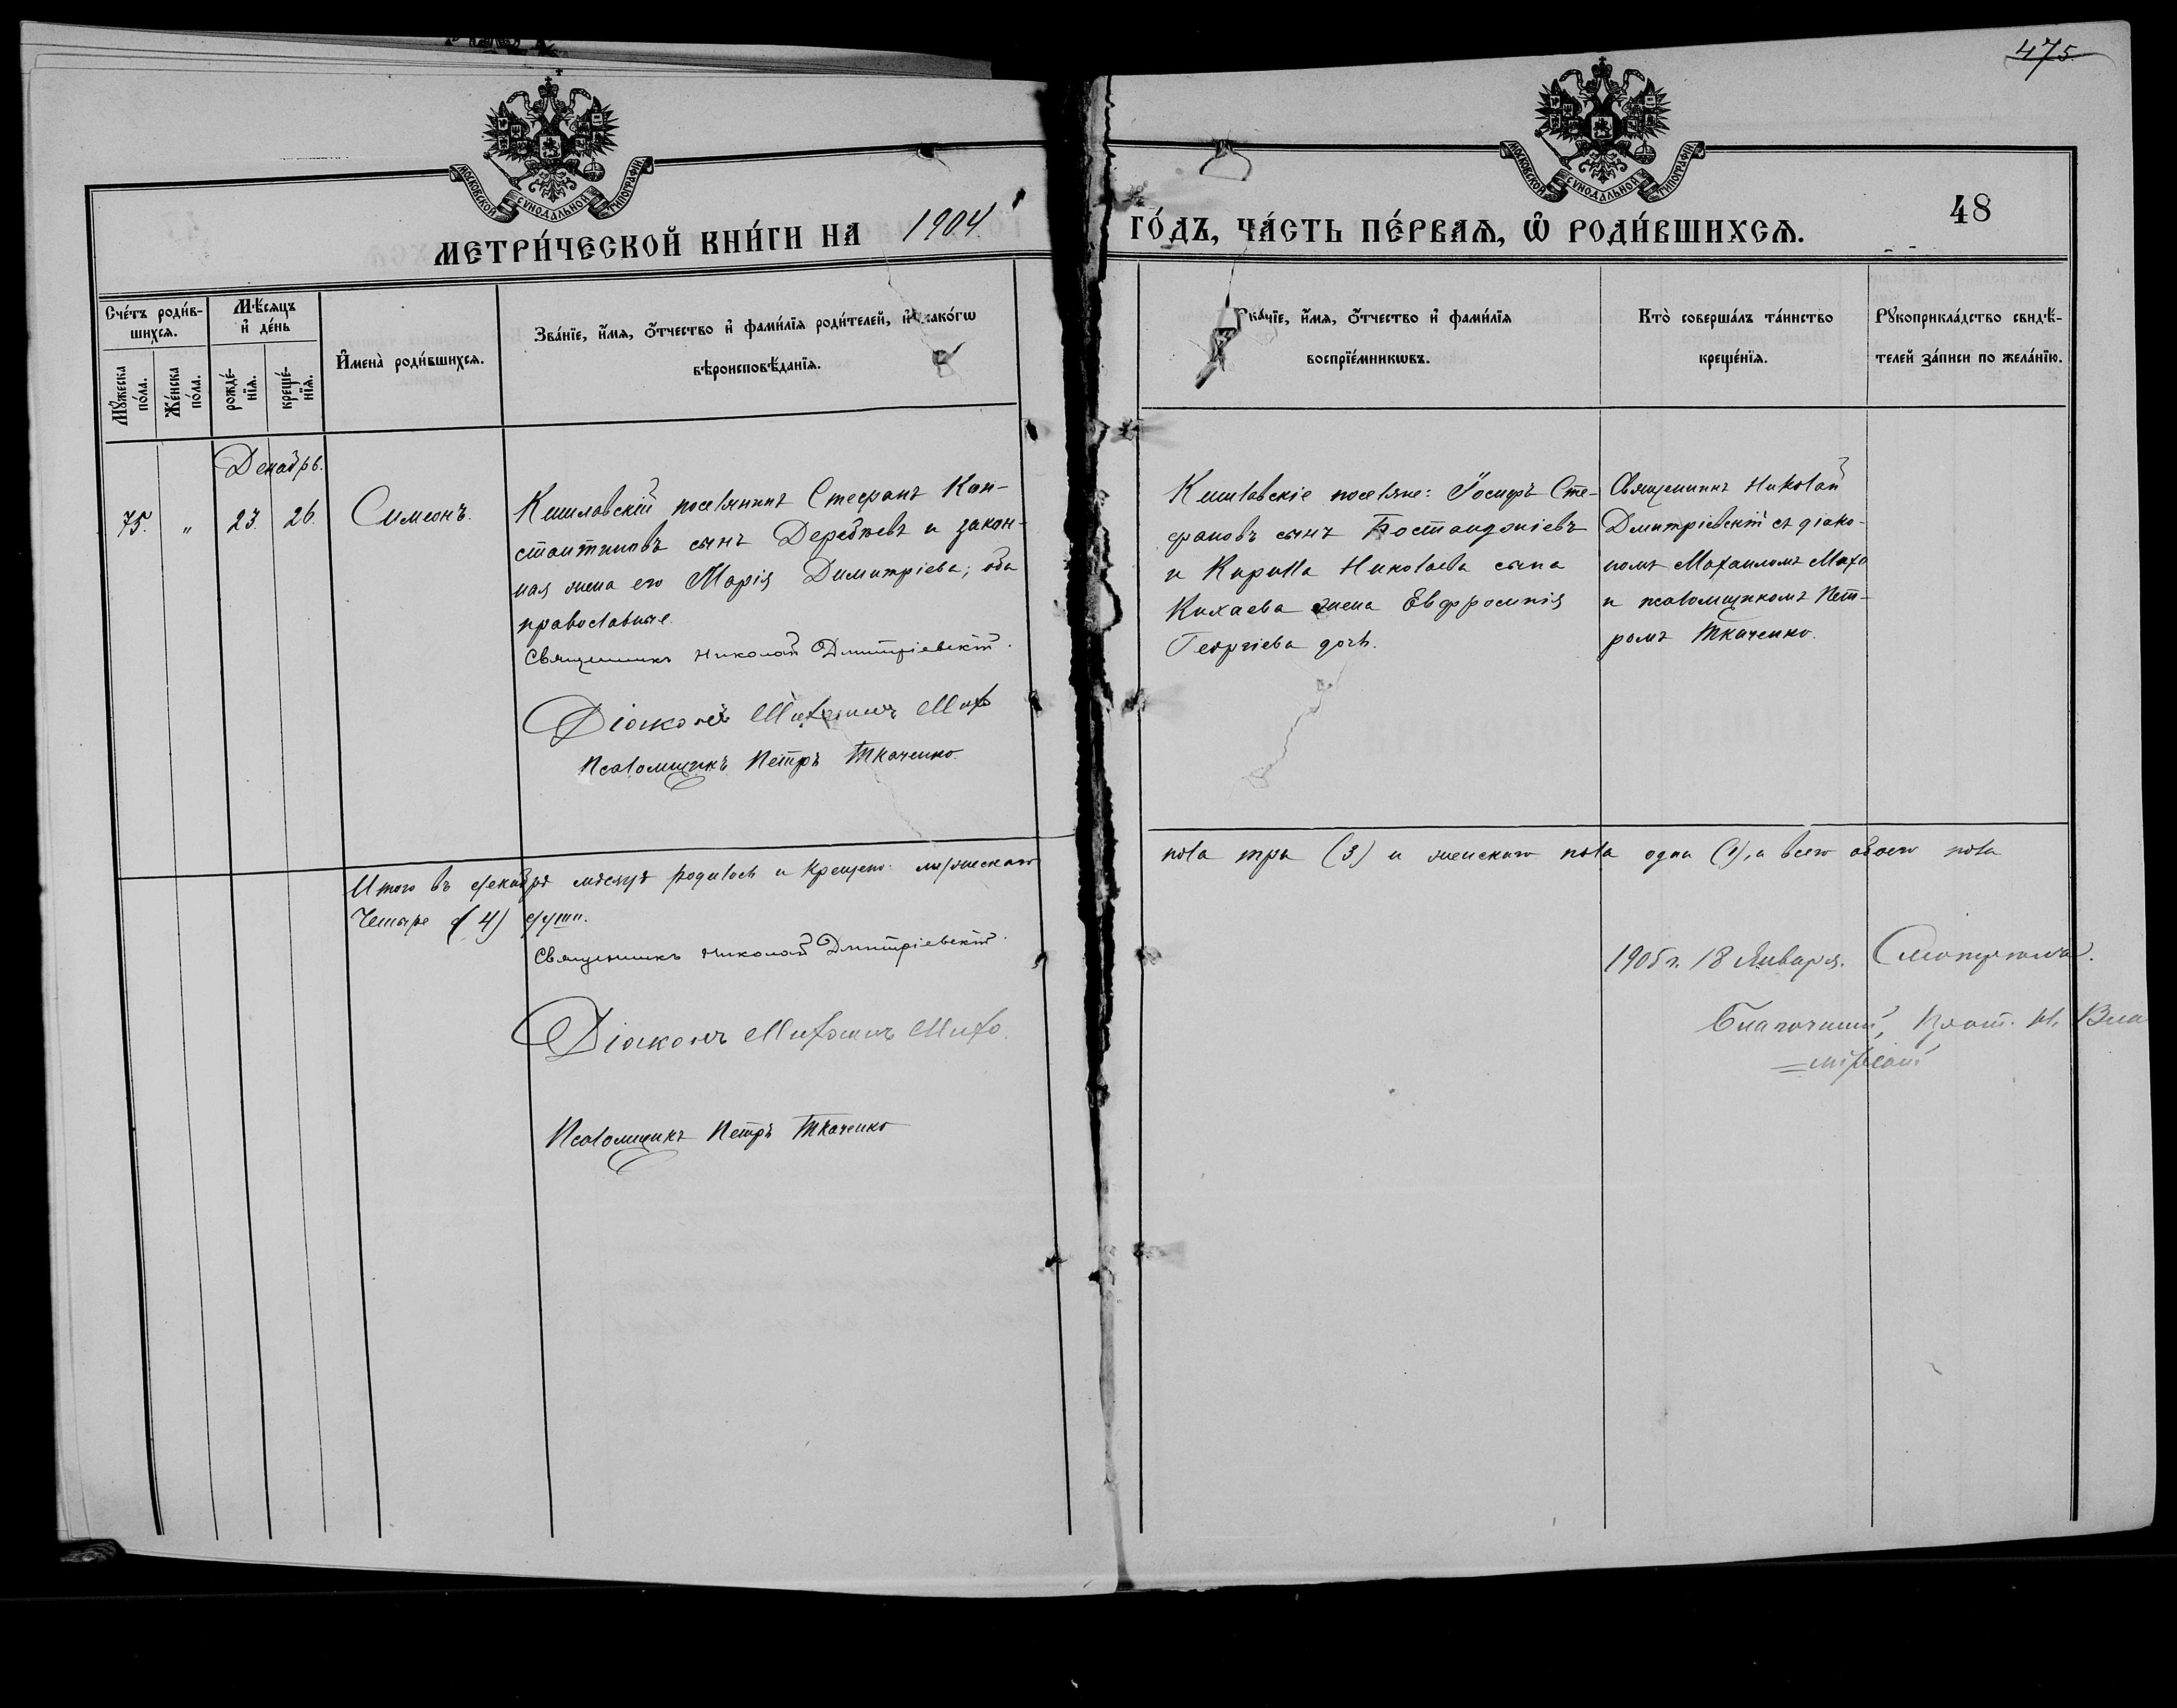 475.
МОСКОВСКОЙ СѴНОДАЛЬНОЙ ТИПОГРАФІИ
МОСКОВСКОЙ СѴНОДАЛЬНОЙ ТИПОГРАФІИ
48
МЕТРИ́ЧЕСКОЙ КНИ́ГИ НА 1904 ГО́ДЪ, ЧА́СТЬ ПЕ́РВАѦ, Ѡ҆ РОДИ́ВШИХСѦ.
Сче́тъ роди́в-
шихсѧ.
Мꙋ́жеска по́ла.
Же́нска по́ла.
Мѣ́сѧцъ
и҆ де́нь
рожде́-
нїѧ.
креще́-
нїѧ.
И҆мена̀ роди́вшихсѧ.
Зва́нїе, и҆́мѧ, ѻ҆́тчество и҆ фами́лїѧ роди́телей, и҆ како́гѡ
вѣроисповѣ́данїѧ.
Зва́нїе, и҆́мѧ, ѻ҆́тчество и҆ фами́лїѧ
воспрїе́мникѡвъ.
Кто̀ соверша́лъ та́инство
креще́нїѧ.
Рꙋкоприкла́дство свидѣ́-
телей за́писи по жела́нїю.
Декабрь.
75. " 23. 26. Симеонъ.
Кишлавскій поселянинъ Стефанъ Кон-
стантиновъ сынъ Деребжевъ и закон-
ная жена его Марія Димитріева; оба
православные.
Священникъ Николай Дмитріевскій.
Діаконъ Михаилъ Михо
Псаломщикъ Петръ Ткаченко.
Кишлавскіе поселяне: Іосифъ Сте-
фановъ сынъ Бостанджіевъ
и Кирилла Николаева сына
Кихаева жена Евфросинія
Георгіева дочь.
Священникъ Николай
Дмитріевскій съ діако-
номъ Михаиломъ Михо
и псаломщикомъ Пет-
ромъ Ткаченко.
Итого въ декабрѣ мѣсяцѣ родилось и крещено: мужескаго пола три (3) и женскаго пола одна (1), а всего обоего пола
Четыре (4) души.
Священникъ Николай Дмитріевскій.
Діаконъ Михаилъ Михо.
Псаломщикъ Петръ Ткаченко
1905 г. 18 Января.
Благочинный, Прот.